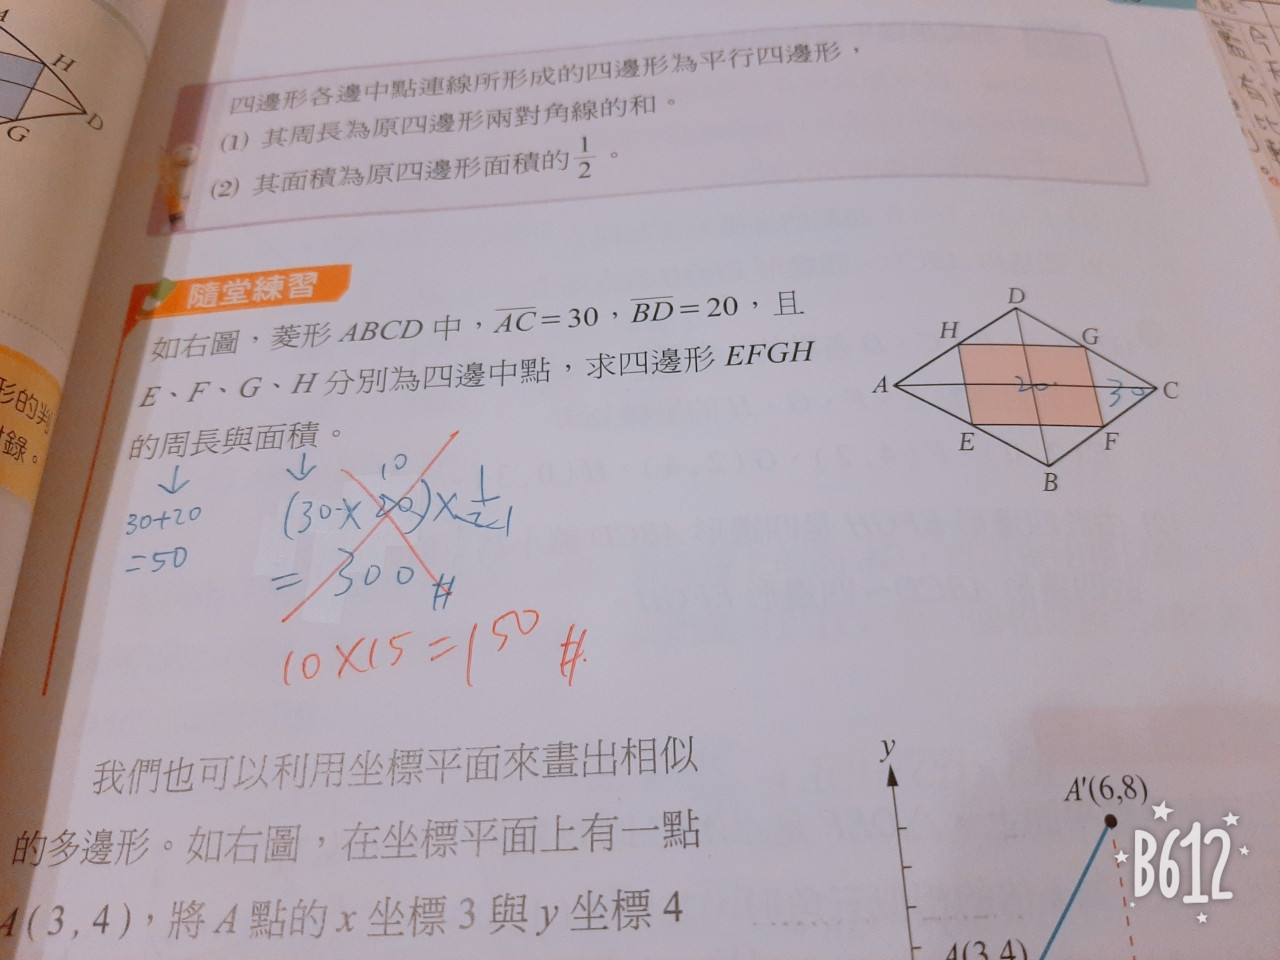 A
H
D
G
四邊形各邊中點連線所形成的四邊形為平行四邊形，
(1) 其周長為原四邊形兩對角線的和。
(2) 其面積為原四邊形面積的 1/2 。
形的判
付錄。
隨堂練習
如右圖，菱形 ABCD 中，AC = 30，BD = 20，且
E、F、G、H 分別為四邊中點，求四邊形 EFGH
的周長與面積。
D
H
G
A
20
30
C
E
F
B
30+20
=50
10
(30×20)×1/2 1
= 300 #
10×15=150 #
我們也可以利用坐標平面來畫出相似
的多邊形。如右圖，在坐標平面上有一點
A(3, 4)，將 A 點的 x 坐標 3 與 y 坐標 4
y
A'(6,8)
A(3,4)
B612